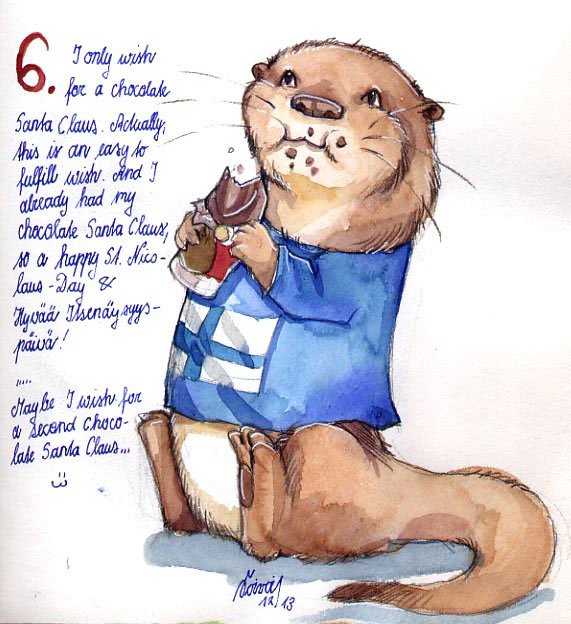 6. I only wish
for a chocolate
Santa Claus. Actually,
this is an easy to
fulfill wish. And I
already had my
chocolate Santa Claus,
so a happy St. Nico-
laus-Day &
Hyvää Itsenäysyys-
päivä!
.....
Maybe I wish for
a second choco-
late Santa Claus...
:3
12/13